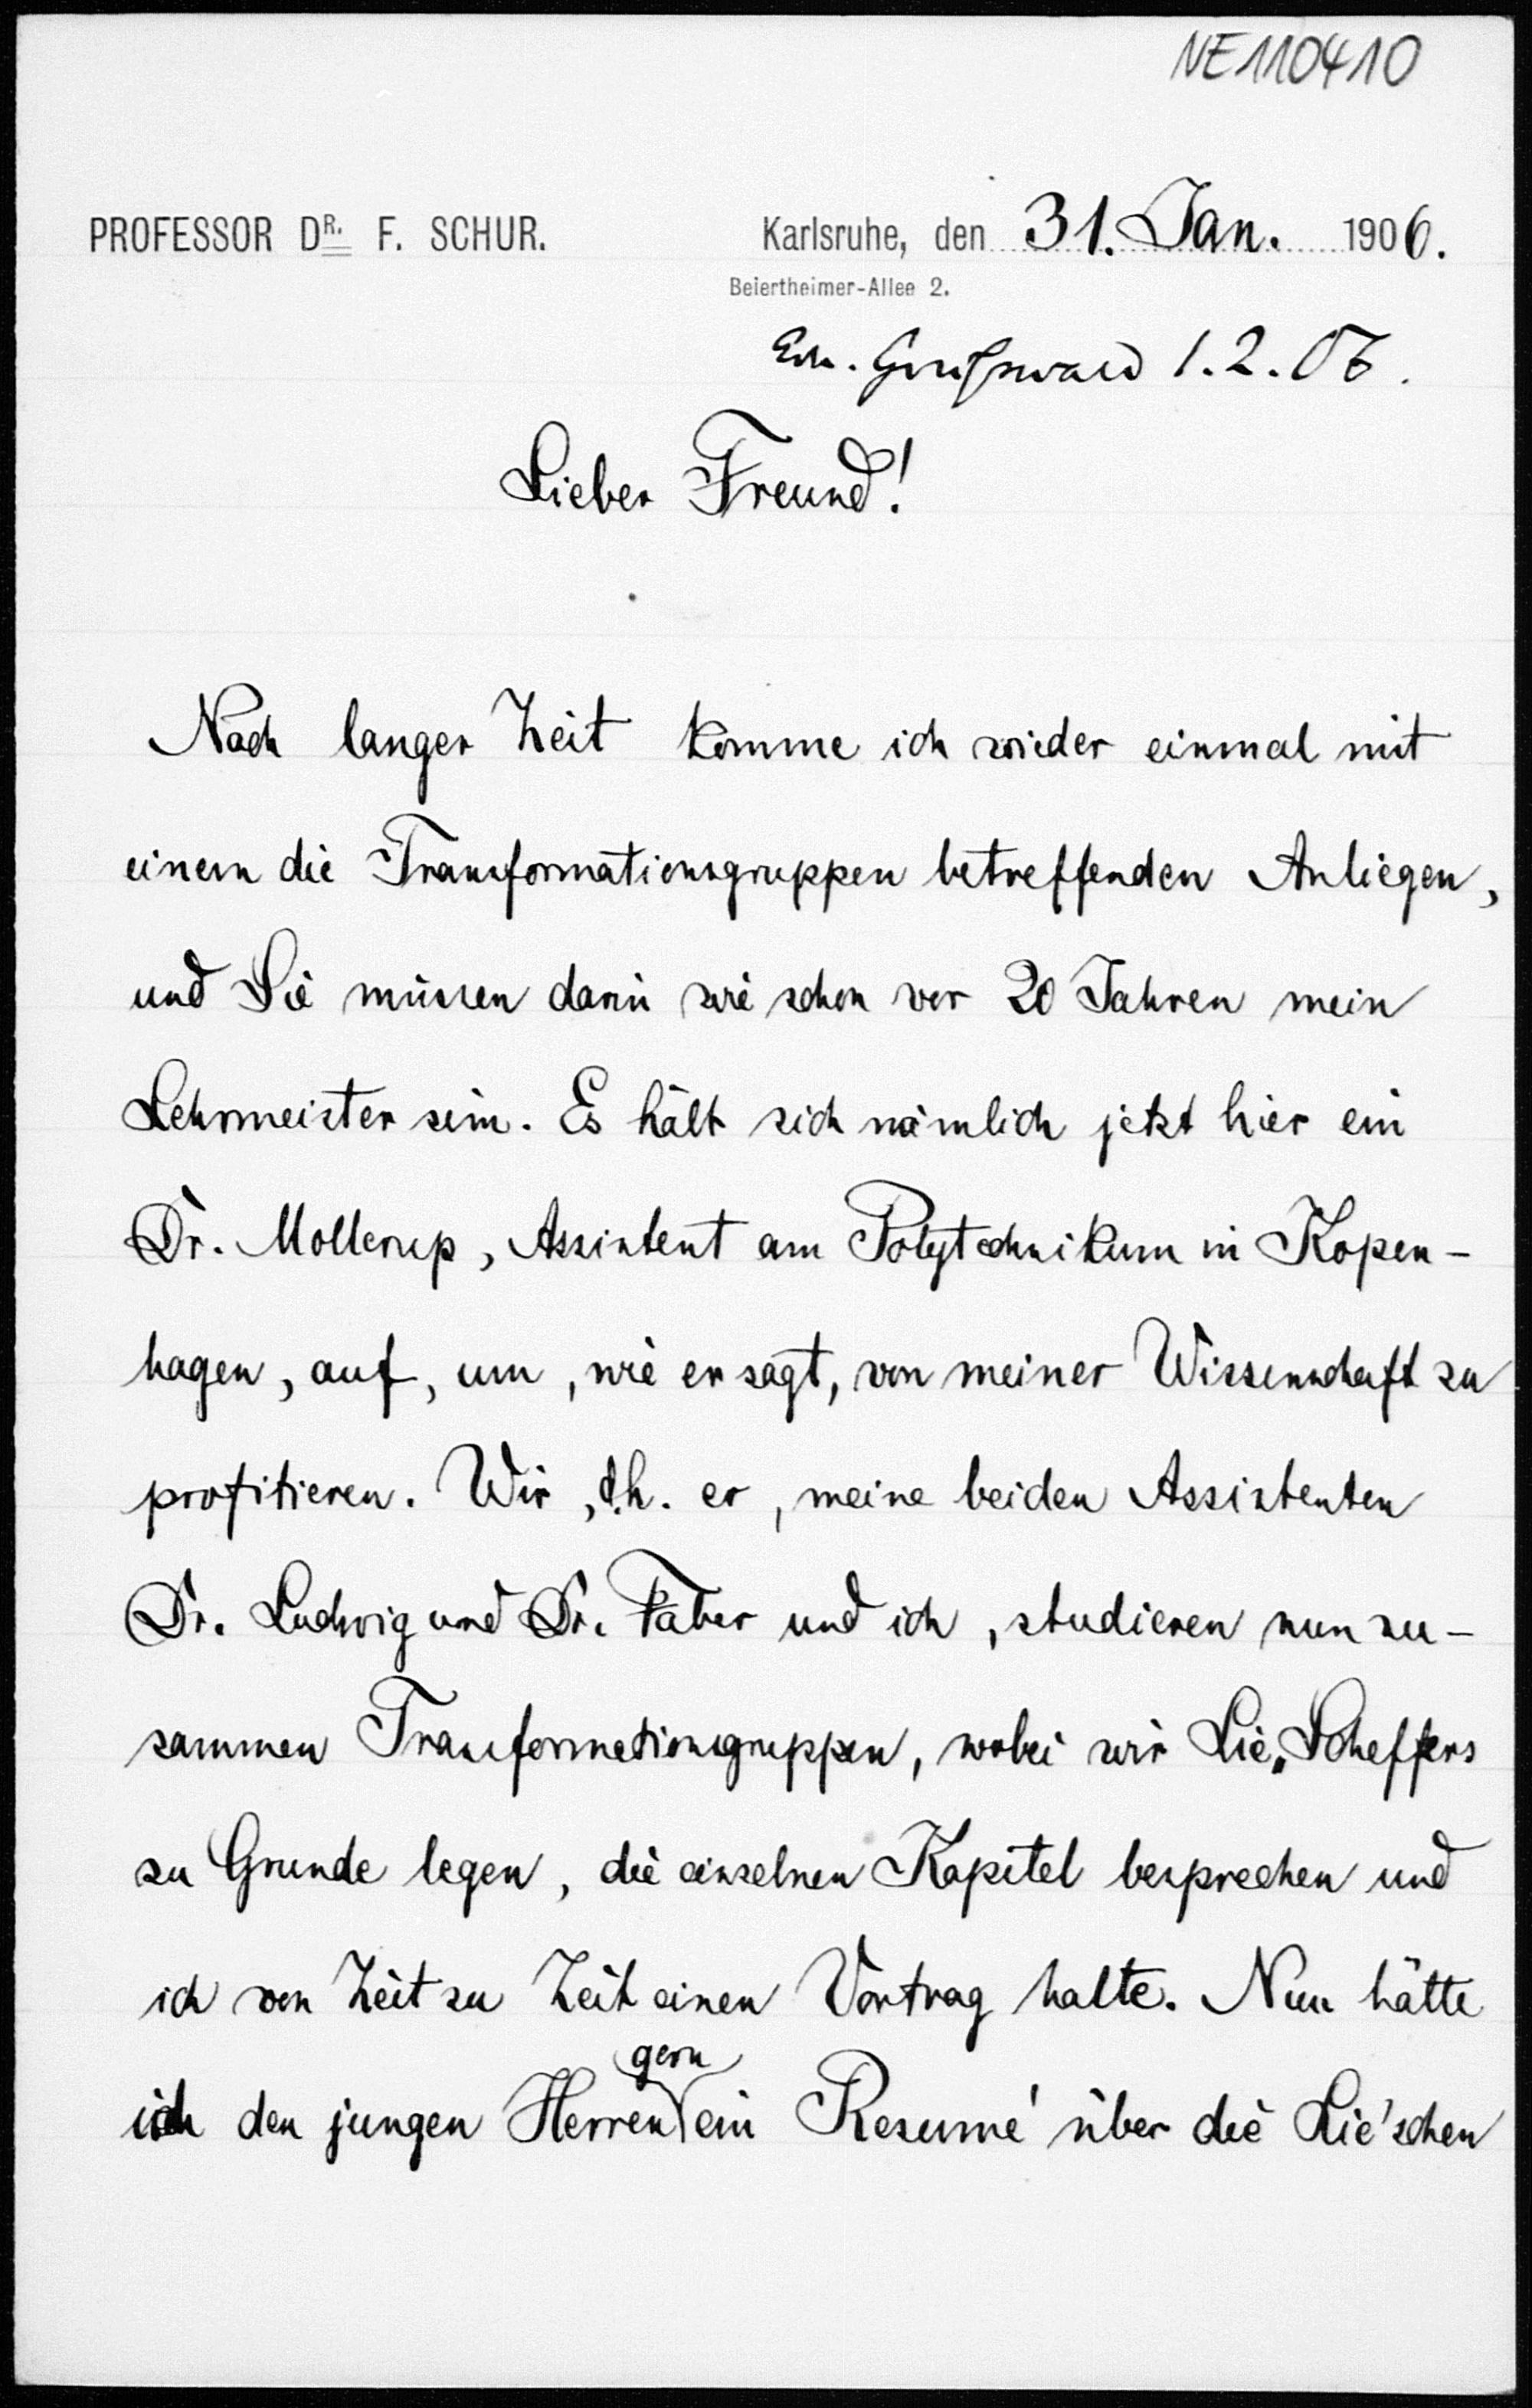 NE110410
PROFESSOR DR. F. SCHUR. Karlsruhe, den 31. Jan. 1906.
Beiertheimer-Allee 2.
Erh. Greifswald 1.2.06.
Lieber Freund!
Nach langer Zeit komme ich wieder einmal mit
einem die Transformationsgruppen betreffenden Anliegen,
und Sie müssen darin wie schon vor 20 Jahren mein
Lehrmeister sein. Es hält sich nämlich jetzt hier ein
Dr. Mollerup, Assistent am Polytechnikum in Kopen-
hagen, auf, um, wie er sagt, von meiner Wissenschaft zu
profitieren. Wir, d.h. er, meine beiden Assistenten
Dr. Ludwig und Dr. Faber und ich, studieren nun zu-
sammen Transformationsgruppen, wobei wir Lie-Scheffers
zu Grunde legen, die einzelnen Kapitel besprechen und
ich von Zeit zu Zeit einen Vortrag halte. Nun hätte
ich den jungen Herren gern ein Resumé über die Lie'schen